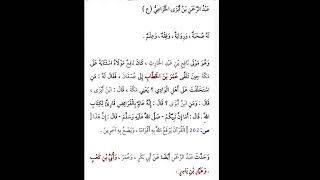 عَبْدُ الرَّحْمَنِ بْنُ أَبْزَى الْخُزَاعِيُّ ( ع )
لَهُ صُحْبَةٌ ، وَرِوَايَةٌ ، وَفِقْهٌ ، وَعِلْمٌ .
وَهُوَ مَوْلَى نَافِعِ بْنِ عَبْدِ الْحَارِثِ ، كَانَ نَافِعٌ مَوْلَاهُ اسْتَنَابَهُ عَلَى
مَكَّةَ حِينَ تَلَقَّى عُمَرَ بْنَ الْخَطَّابِ إِلَى عُسْفَانَ ، فَقَالَ لَهُ : مَنِ
اسْتَخْلَفْتَ عَلَى أَهْلِ الْوَادِي ؟ يَعْنِي مَكَّةَ ، قَالَ : ابْنَ أَبْزَى ،
قَالَ : وَمَنِ ابْنُ أَبْزَى ؟ قَالَ : إِنَّهُ عَالِمٌ بِالْفَرَائِضِ قَارِئٌ لِكِتَابِ
اللَّهِ . قَالَ : أَمَا إِنَّ نَبِيَّكُمْ - صَلَّى اللَّهُ عَلَيْهِ وَسَلَّمَ - قَالَ : إِنَّ هَذَا
[ ص: 202 ] الْقُرْآنَ يَرْفَعُ اللَّهُ بِهِ أَقْوَامًا ، وَيَضَعُ بِهِ آخَرِينَ .
وَحَدَّثَ عَبْدُ الرَّحْمَنِ أَيْضًا عَنْ أَبِي بَكْرٍ ، وَعُمَرَ ، وَأُبَيِّ بْنِ كَعْبٍ
، وَعَمَّارِ بْنِ يَاسِرٍ .